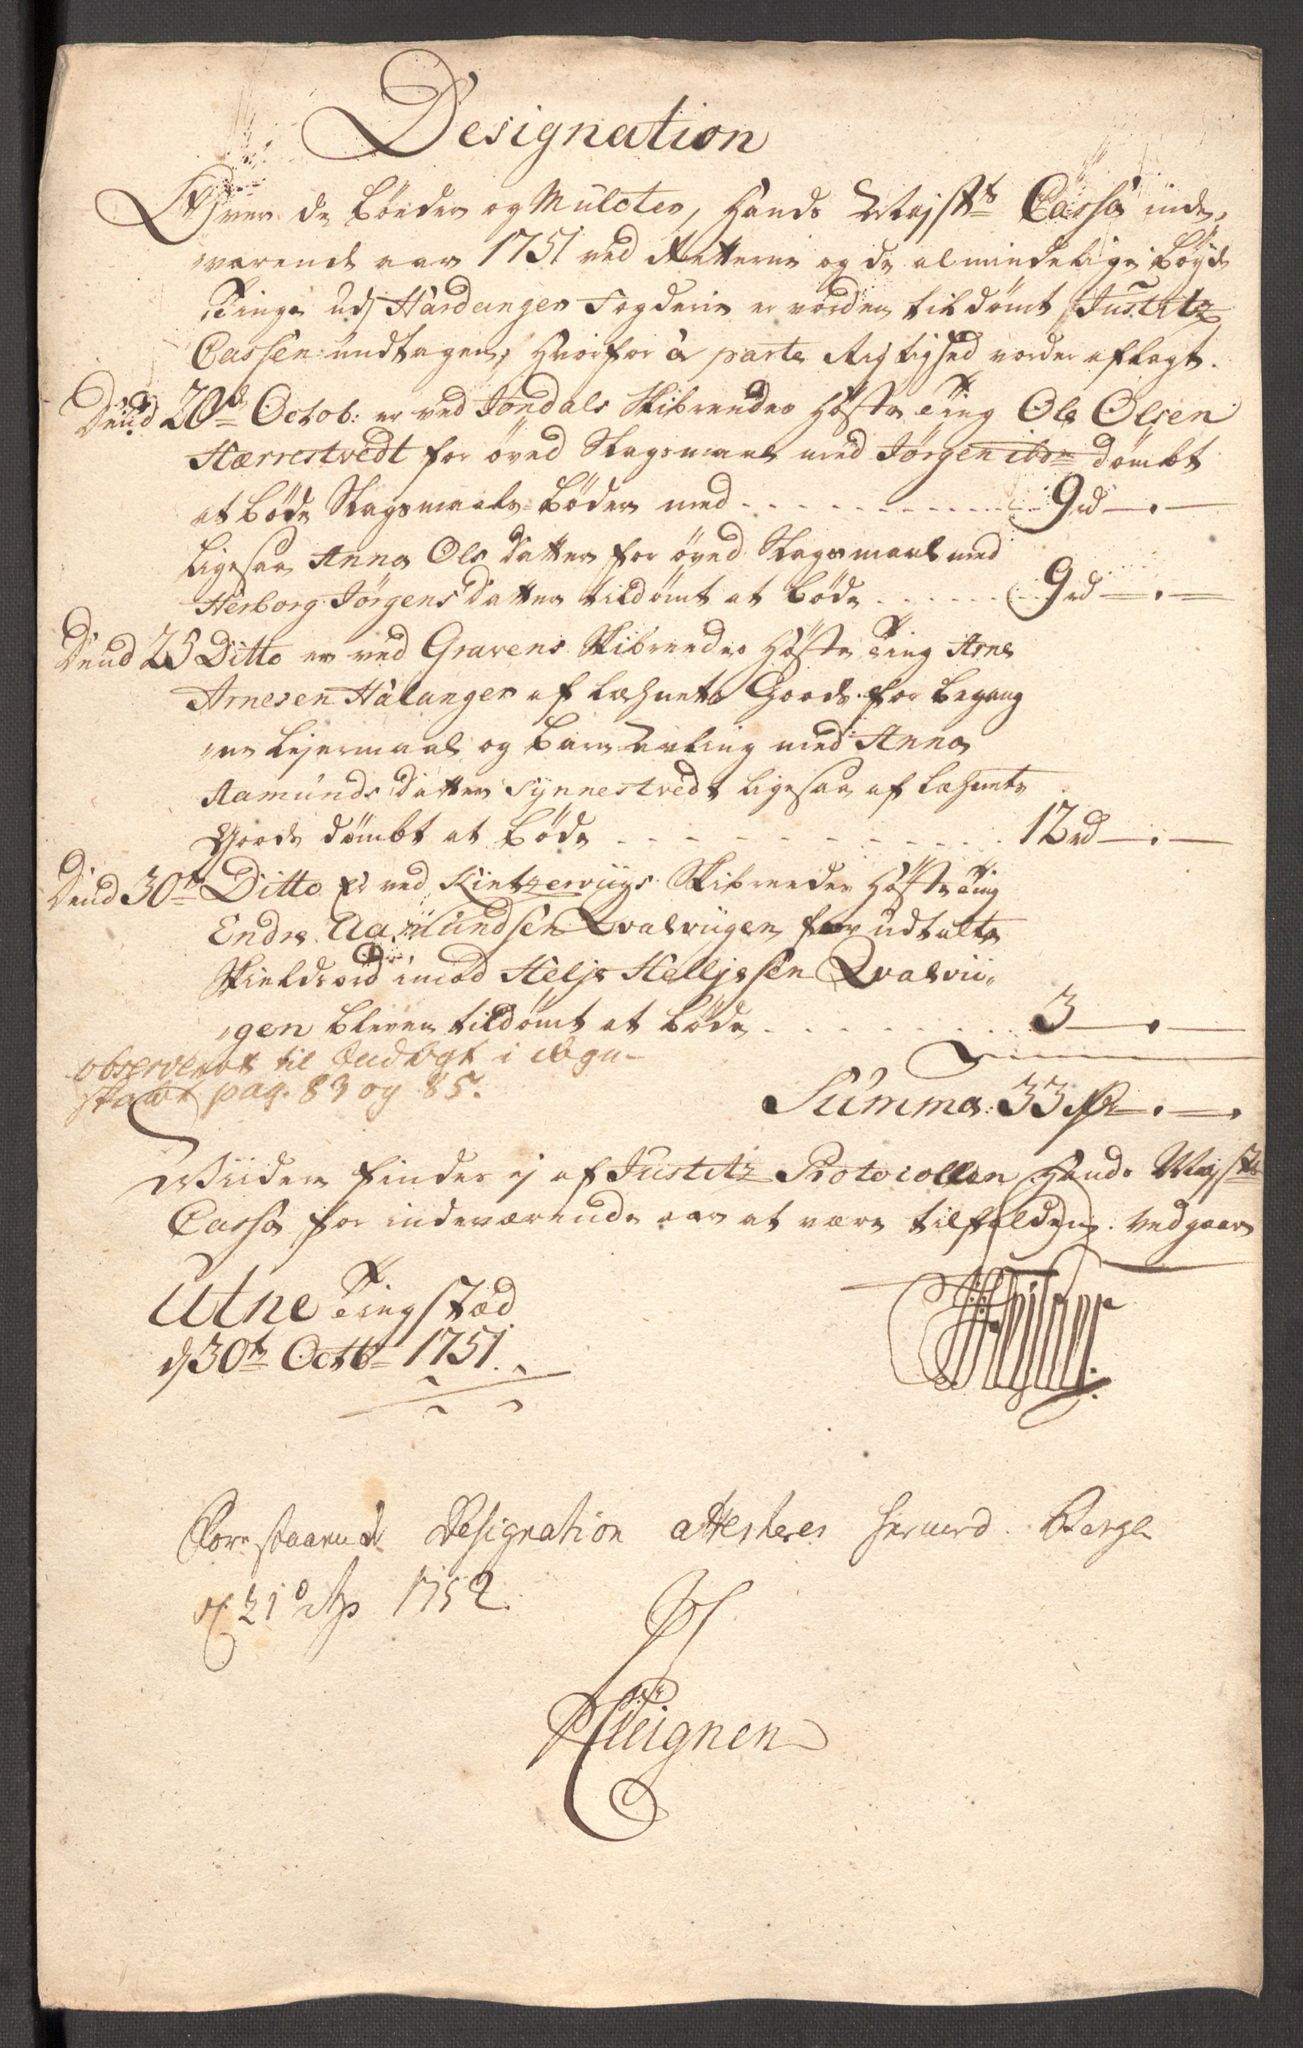 Designation
Over de Bøeder og Mulcter, Hands Maÿstts Cassa inde„
værende aar 1751 ved Retterne og de almindelige Bøÿde
Tinge udj Hardanger Fogderie er vorden tildømt, Justitz
Cassen undtagen, hvorfor à parte Rigtighed vorder aflagt.
Dend 20de Octob: er ved Jondals Skibreedes Høste Ting Ole Olsen
Hærrestvedt for øved Slagsmaal med Jørgen ibm dømbt
at bøde Slagsmaals-Bøder med . . . . . . . . . 9 rd — . —
Ligesaa Anna Ols datter for øved Slagsmaal med
Herborg Jørgens datter tildømt at bøde . . . . . . 9 rd — . —
Dend 25 Ditto er ved Gravens Skibreedes Høste Ting Arne
Arnesen Hålanger af Læhnets Goods for begang
„ne Lejermaal og Barne Avling med Anna
Aamunds datter Synnestvedt ligesaa af Læhnets
Goods dømbt at bøde . . . . . . . . . 12 rd — . —
Dend 30te Ditto er ved Kintzerviigs Skibreedes Høste Ting
Endre Aamundsen Qvalviigen for udtalte
Skieldsord imod Helje Helljesen Qvalvii„
„gen bleven tildømt at bøde . . . . . . . . . 3 — . —
observeret til Indtægt i
pag. 83 og 85.
Summa: 33 rd — . — .
Viidere findes ej af Justitz Protocollen Hands Maÿstts
Cassa for indeværende aar at være tilfalden. Vedgaaer
Utne Tingstæd
d 30te Octb 1751.
Forestaaende Designation attesteres herved. Berge
d. 21de 1752.